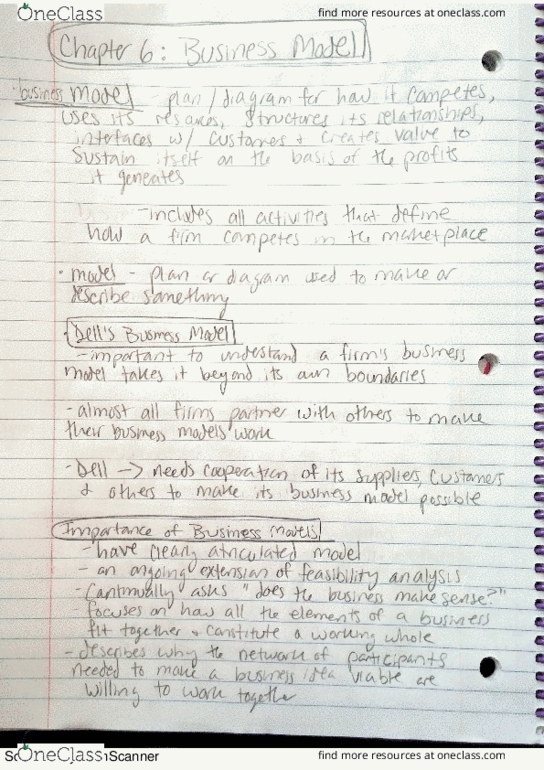 OneClass
find more resources at oneclass.com
Chapter 6: Business Model
· business model - plan / diagram for how it competes,
uses its resources, structures its relationships,
interfaces w/ customers + creates value to
sustain itself on the basis of the profits
it generates
- includes all activities that define
how a firm competes in the marketplace
· model - plan or diagram used to make or
describe something
· Dell's Business Model
- important to understand a firm's business
model takes it beyond its own boundaries
- almost all firms partner with others to make
their business models work
- Dell -> needs cooperation of its suppliers, customers
& others to make its business model possible
Importance of Business Models
- have clearly articulated model
- an ongoing extension of feasibility analysis
- continually asks "does the business make sense?"
- focuses on how all the elements of a business
fit together + constitute a working whole
- describes why the network of participants
needed to make a business idea viable are
willing to work together
OneClass
Scanner
find more resources at oneclass.com